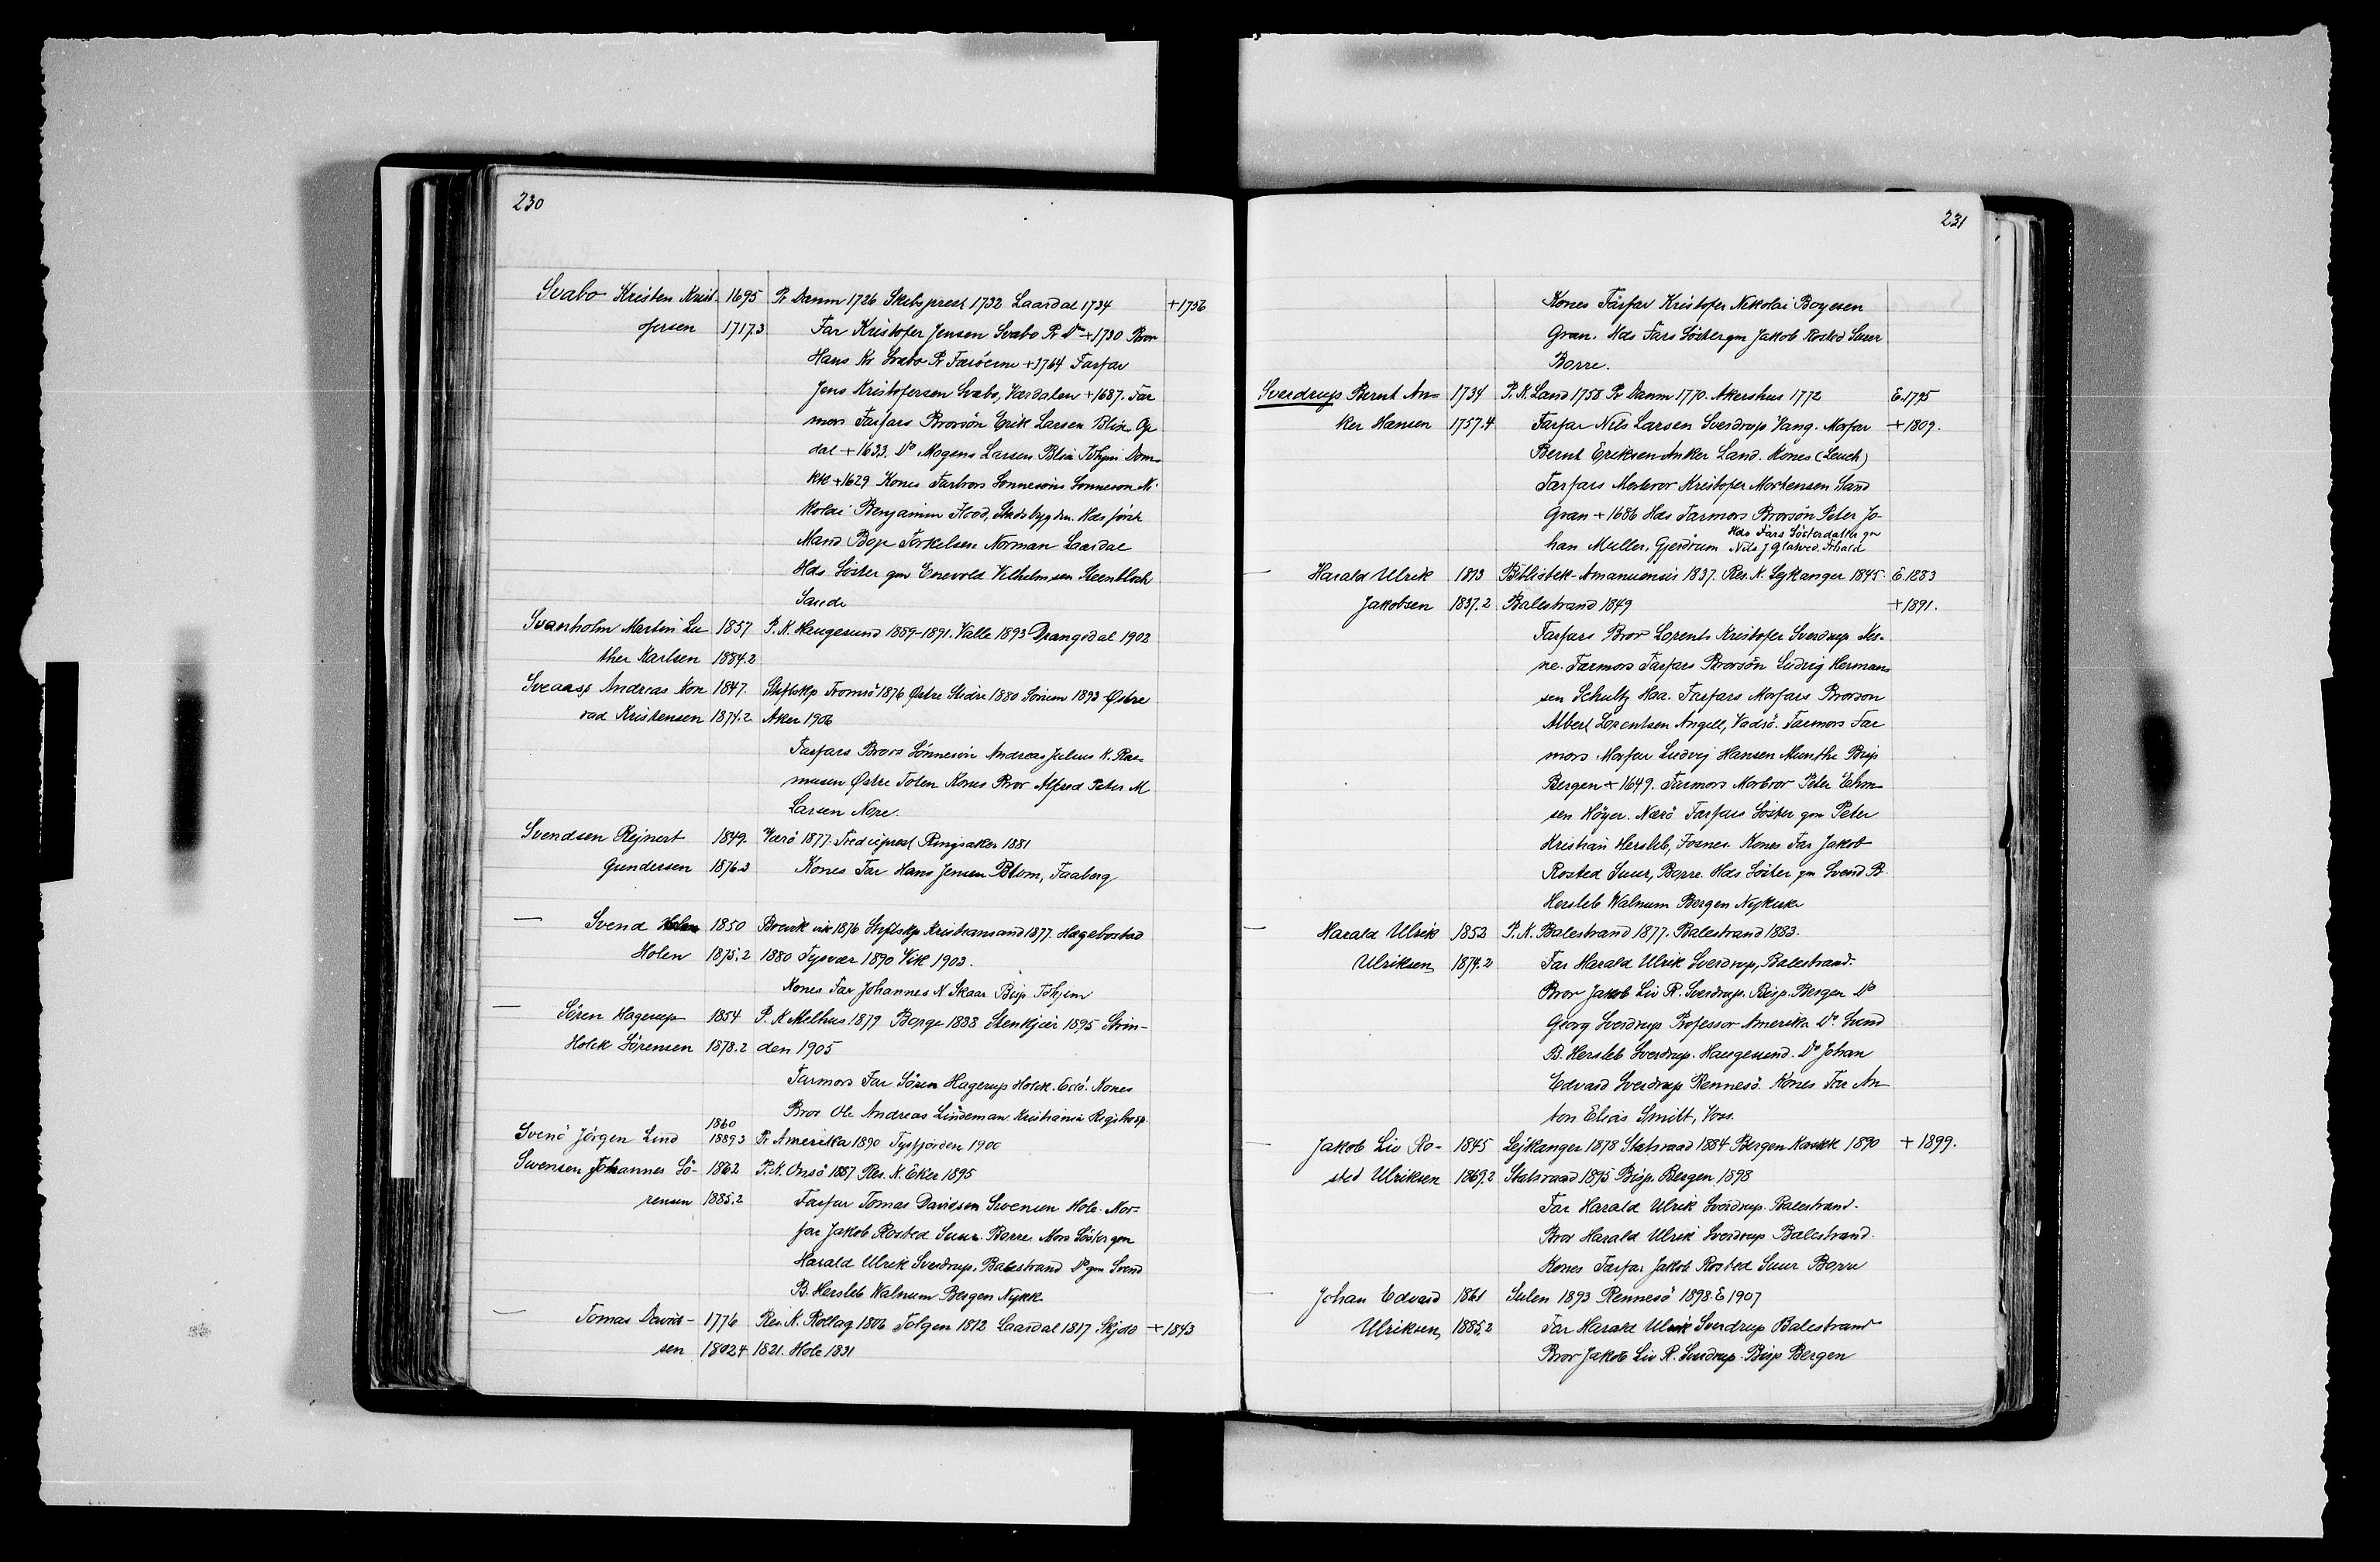 230
Svabo Kristen Krist- 1695 Pr Danm 1726 Skibsprest 1732 Laardal 1734 +1756
ofersen 1717.3 Far Kristofer Jensen Svabo Pr Dm +1730 Bror
Hans Kr Svabo Pr Færöerne +1764 Farfar
Jens Kristofersen Svabo, Værdalen +1687. Far
mors Farfars Brorsön Erik Larsen Blix Op
dal +1633. Do Mogens Larsen Blix Tdhjm Dom-
kk +1629 Kones Farbrors Sønnesøns Sønnesøn Ni-
kolai Benjamin Flood, Stadsbygden. Hds först
Mand Boje Torkelsen Norman Laardal
Hds Søster gm Enevold Vilhelmsen Steenbloch
Saude
Svanholm Martin Lu- 1857 P. K. Haugesund 1889-1891. Valle 1893 Drangedal 1902
ther Karlsen 1884.2
Sveaass Andreas Kon 1847. Stiftskp Tromsö 1876 Østre Slidre 1880 Sörum 1893 Østre
rad Kristensen 1874.2 Aker 1906
Farfars Brors Sönnesön Andreas Julius K. Ras-
mussen Østre Toten Kones Bror Alfred Peter M
Larsen Nore.
Svendsen Rejnert 1849. Værö 1877. Trediepræst Ringsaker 1881
Gundersen 1876.3 Kones Far Hans Jensen Blom, Faaberg
— Svend 1850 Brevik 1876 Stiftskp Kristiansand 1877. Hægebostad
Holen 1875.2 1880 Tysvær 1890 Vik 1903.
Kones Far Johannes N Skaar Bisp Tdhjem
— Sören Hagerup 1854 P. K Melhus 1879 Borge 1888 Stenkjær 1895 Strin-
Holck Sörensen 1878.2 den 1905
Farmors Far Sören Hagerup Holck. Edö. Kones
Bror Ole Andreas Lindeman Kristiania
1860
Svenö Jörgen Lind 1889.3 Pr Amerika 1890 Tysfjorden 1900
Svensen Johannes Sö- 1862 P. K. Onsö 1887 Res. K. Eker 1895
rensen 1885.2 Farfar Tomas Davidsen Svensen Hole. Mor-
far Jakob Rosted Suur. Borre. Mors Söster gm
Harald Ulrik Sverdrup, Balestrand Do gm Svend
B. Hersleb Walnum Bergen Nykk
— Tomas David- 1776 Res. K. Rollag 1806 Tolgen 1812 Laardal 1817 Skjold +1843
sen 1802.4 1821. Hole 1831
231
Kones Farfar Kristofer Nikolai Boyesen
Gran. Hds Fars Söster gm Jakob Rosted Suur
Borre.
Sverdrup Bernt An- 1734 P. K. Land 1758 Pr Danm 1770. Akershus 1772 E. 1795
ker Hansen 1757.4 Farfar Nils Larsen Sverdrup Vang. Morfar +1809.
Bernt Eriksen Anker Land. Kones (Leuch)
Farfars Morbror Kristofer Mortensen Land
Gran +1686 Hds Farmors Brorsön Peter Jo-
han Muller, Gjerdrum Hds Fars Sösterdatter gm
Nils J Glatved.
— Harald Ulrik 1813 Bibliotek-Amanuensis 1837. Res. K. Lejkanger 1845. E. 1883
Jakobsen 1837.2 Balestrand 1849 +1891.
Farfars Bror Lorents Kristofer Sverdrup
ne. Farmors Farfars Brorsön Ludvig Herman-
sen Schultz Haa. Farfars Morfars Brorson
Albert Lorentsen Angell, Vadsö. Farmors Far
mors Morfar Ludvig Hansen Munthe Bisp
Bergen +1649. Farmors Morbror Peter
sen Höyer. Nærö Farfars Söster gm Peter
Kristian Hersleb, Fosnes. Kones Far Jakob
Rosted Suur, Borre. Hds Söster gm Svend B.
Hersleb Walnum Bergen Nykirke
— Harald Ulrik 1852 P. K. Balestrand 1877. Balestrand 1883.
Ulriksen 1874.2 Far Harald Ulrik Sverdrup, Balestrand.
Bror Jakob Liv R. Sverdrup. Bisp. Bergen Do
Georg Sverdrup Professor Amerika Do Svend
B. Hersleb Sverdrup. Haugesund. Do Johan
Edvard Sverdrup Rennesö. Kones Far An-
ton Elias Smitt, Voss.
— Jakob Liv Ro- 1845 Lejkanger 1878 Statsraad 1884 Bergen Korskk 1890 +1899.
sted Ulriksen 1869.2 Statsraad 1895 Bisp. Bergen 1898
Far Harald Ulrik Sverdrup. Balestrand.
Bror Harald Ulrik Sverdrup Balestrand.
Kones Farfar Jakob Rosted Suur Borre
— Johan Edvard 1861 Sulen 1893 Rennesö 1898. E 1907
Ulriksen 1885.2 Far Harald Ulrik Sverdrup Balestrand
Bror Jakob Liv R. Sverdrup. Bisp Bergen